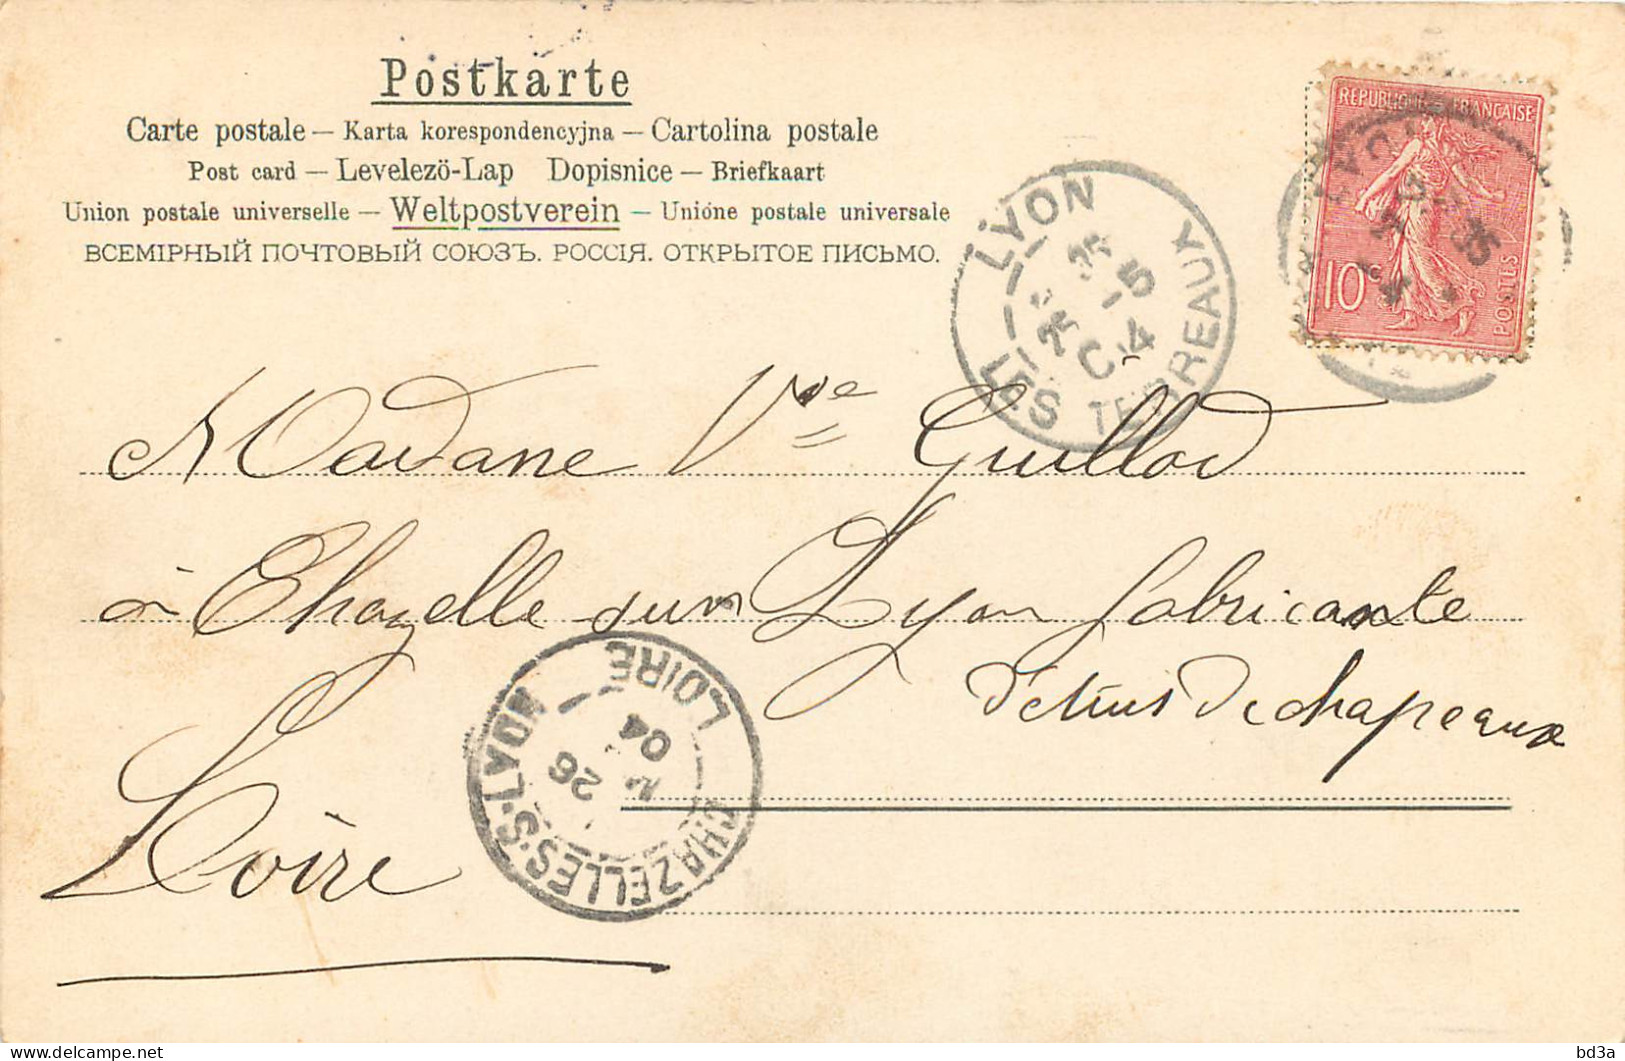 Postkarte
Carte postale — Karta korespondencyjna — Cartolina postale
Post card — Levelezö-Lap Dopisnice — Briefkaart
Union postale universelle — Weltpostverein — Unióne postale universale
ВСЕМІРНЫЙ ПОЧТОВЫЙ СОЮЗЪ. РОССІЯ. ОТКРЫТОЕ ПИСЬМО.
REPUBLIQUE FRANÇAISE
10c
POSTES
LYON
LES TERREAUX
A Madame Vve Guillod
à Chazelle sur Lyon fabricante
de chapeaux
Loire
CHAZELLES-S-LYON
LOIRE
26
04
bd3a